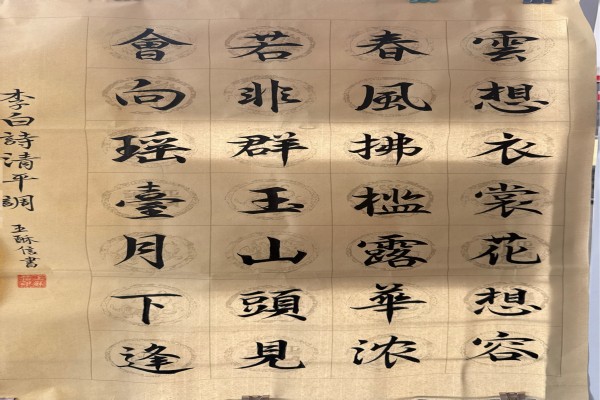 雲想衣裳花想容
春風拂槛露華浓
若非群玉山頭見
會向瑶臺月下逢
李白詩清平調
书